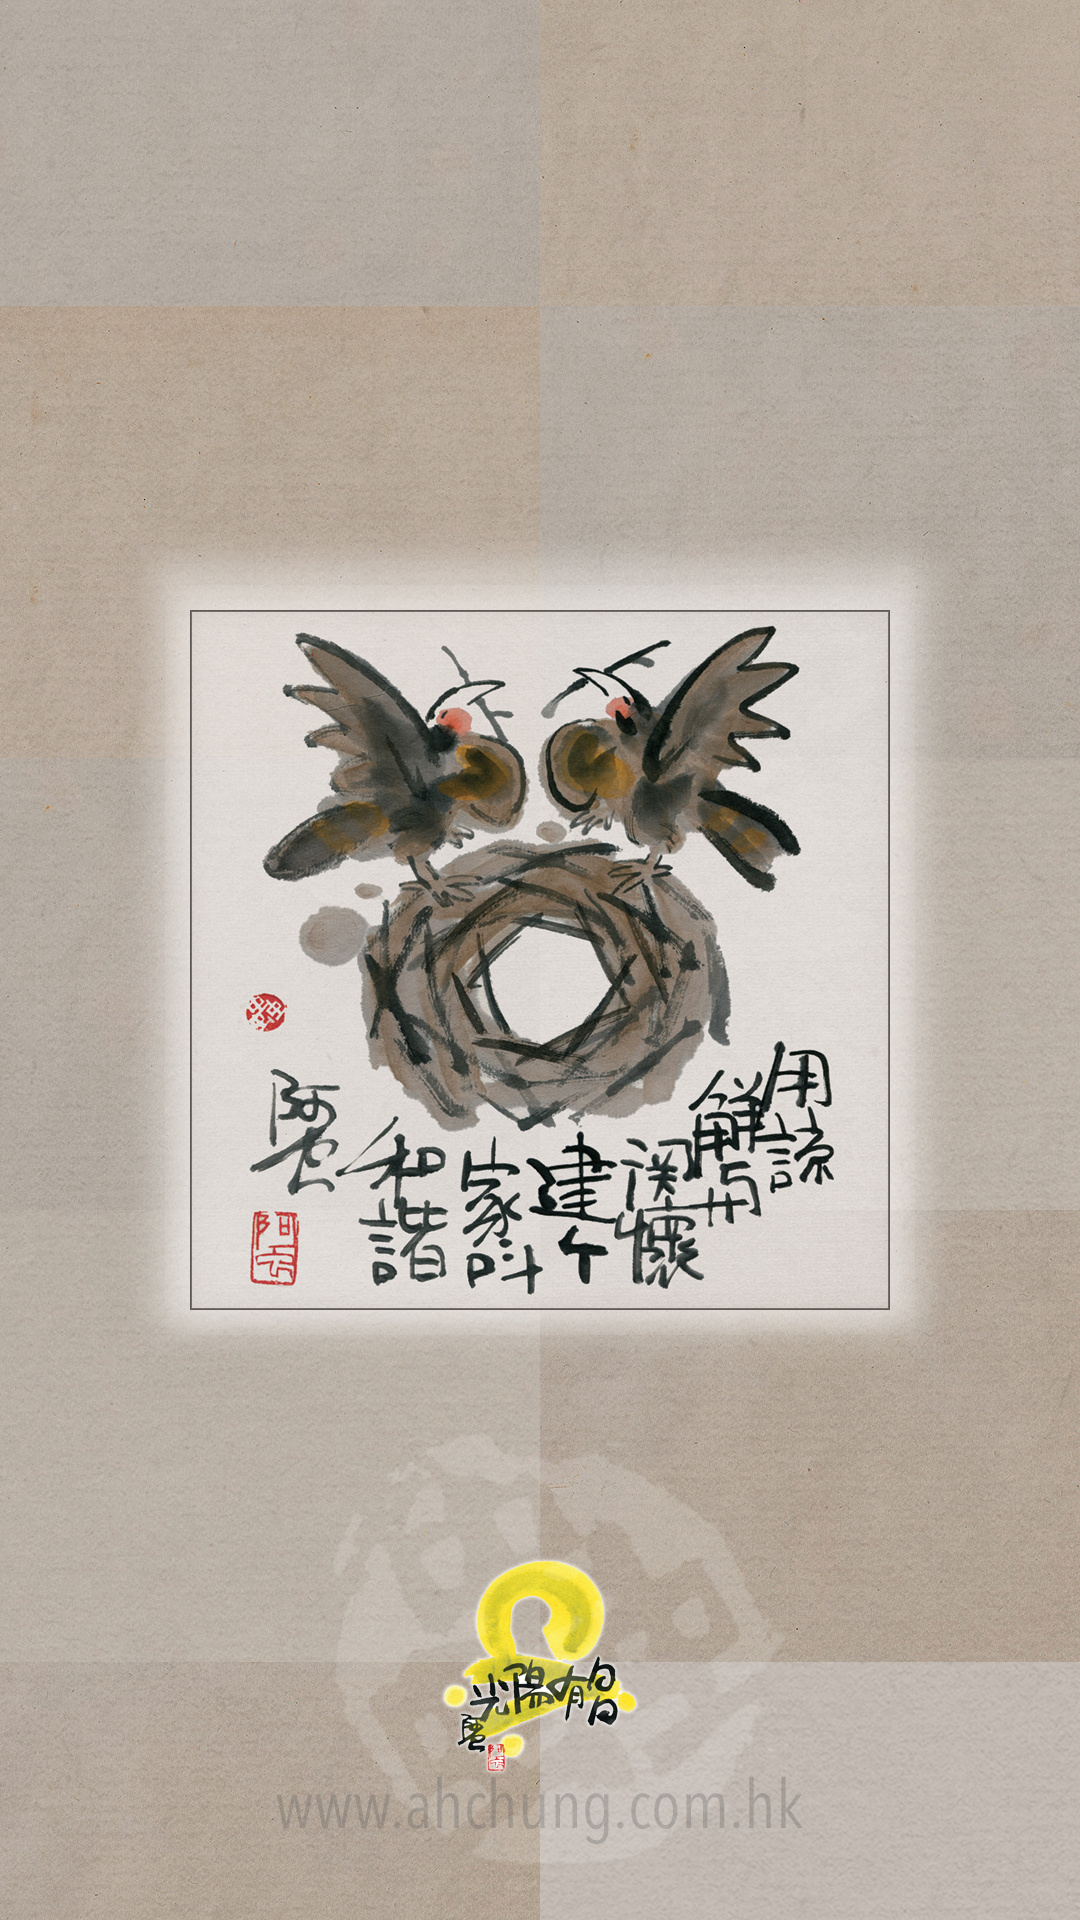 用諒
解与
関懷
建个
家呌
和諧
阿虫
阿虫
昌有陽光
阿虫
www.ahchung.com.hk